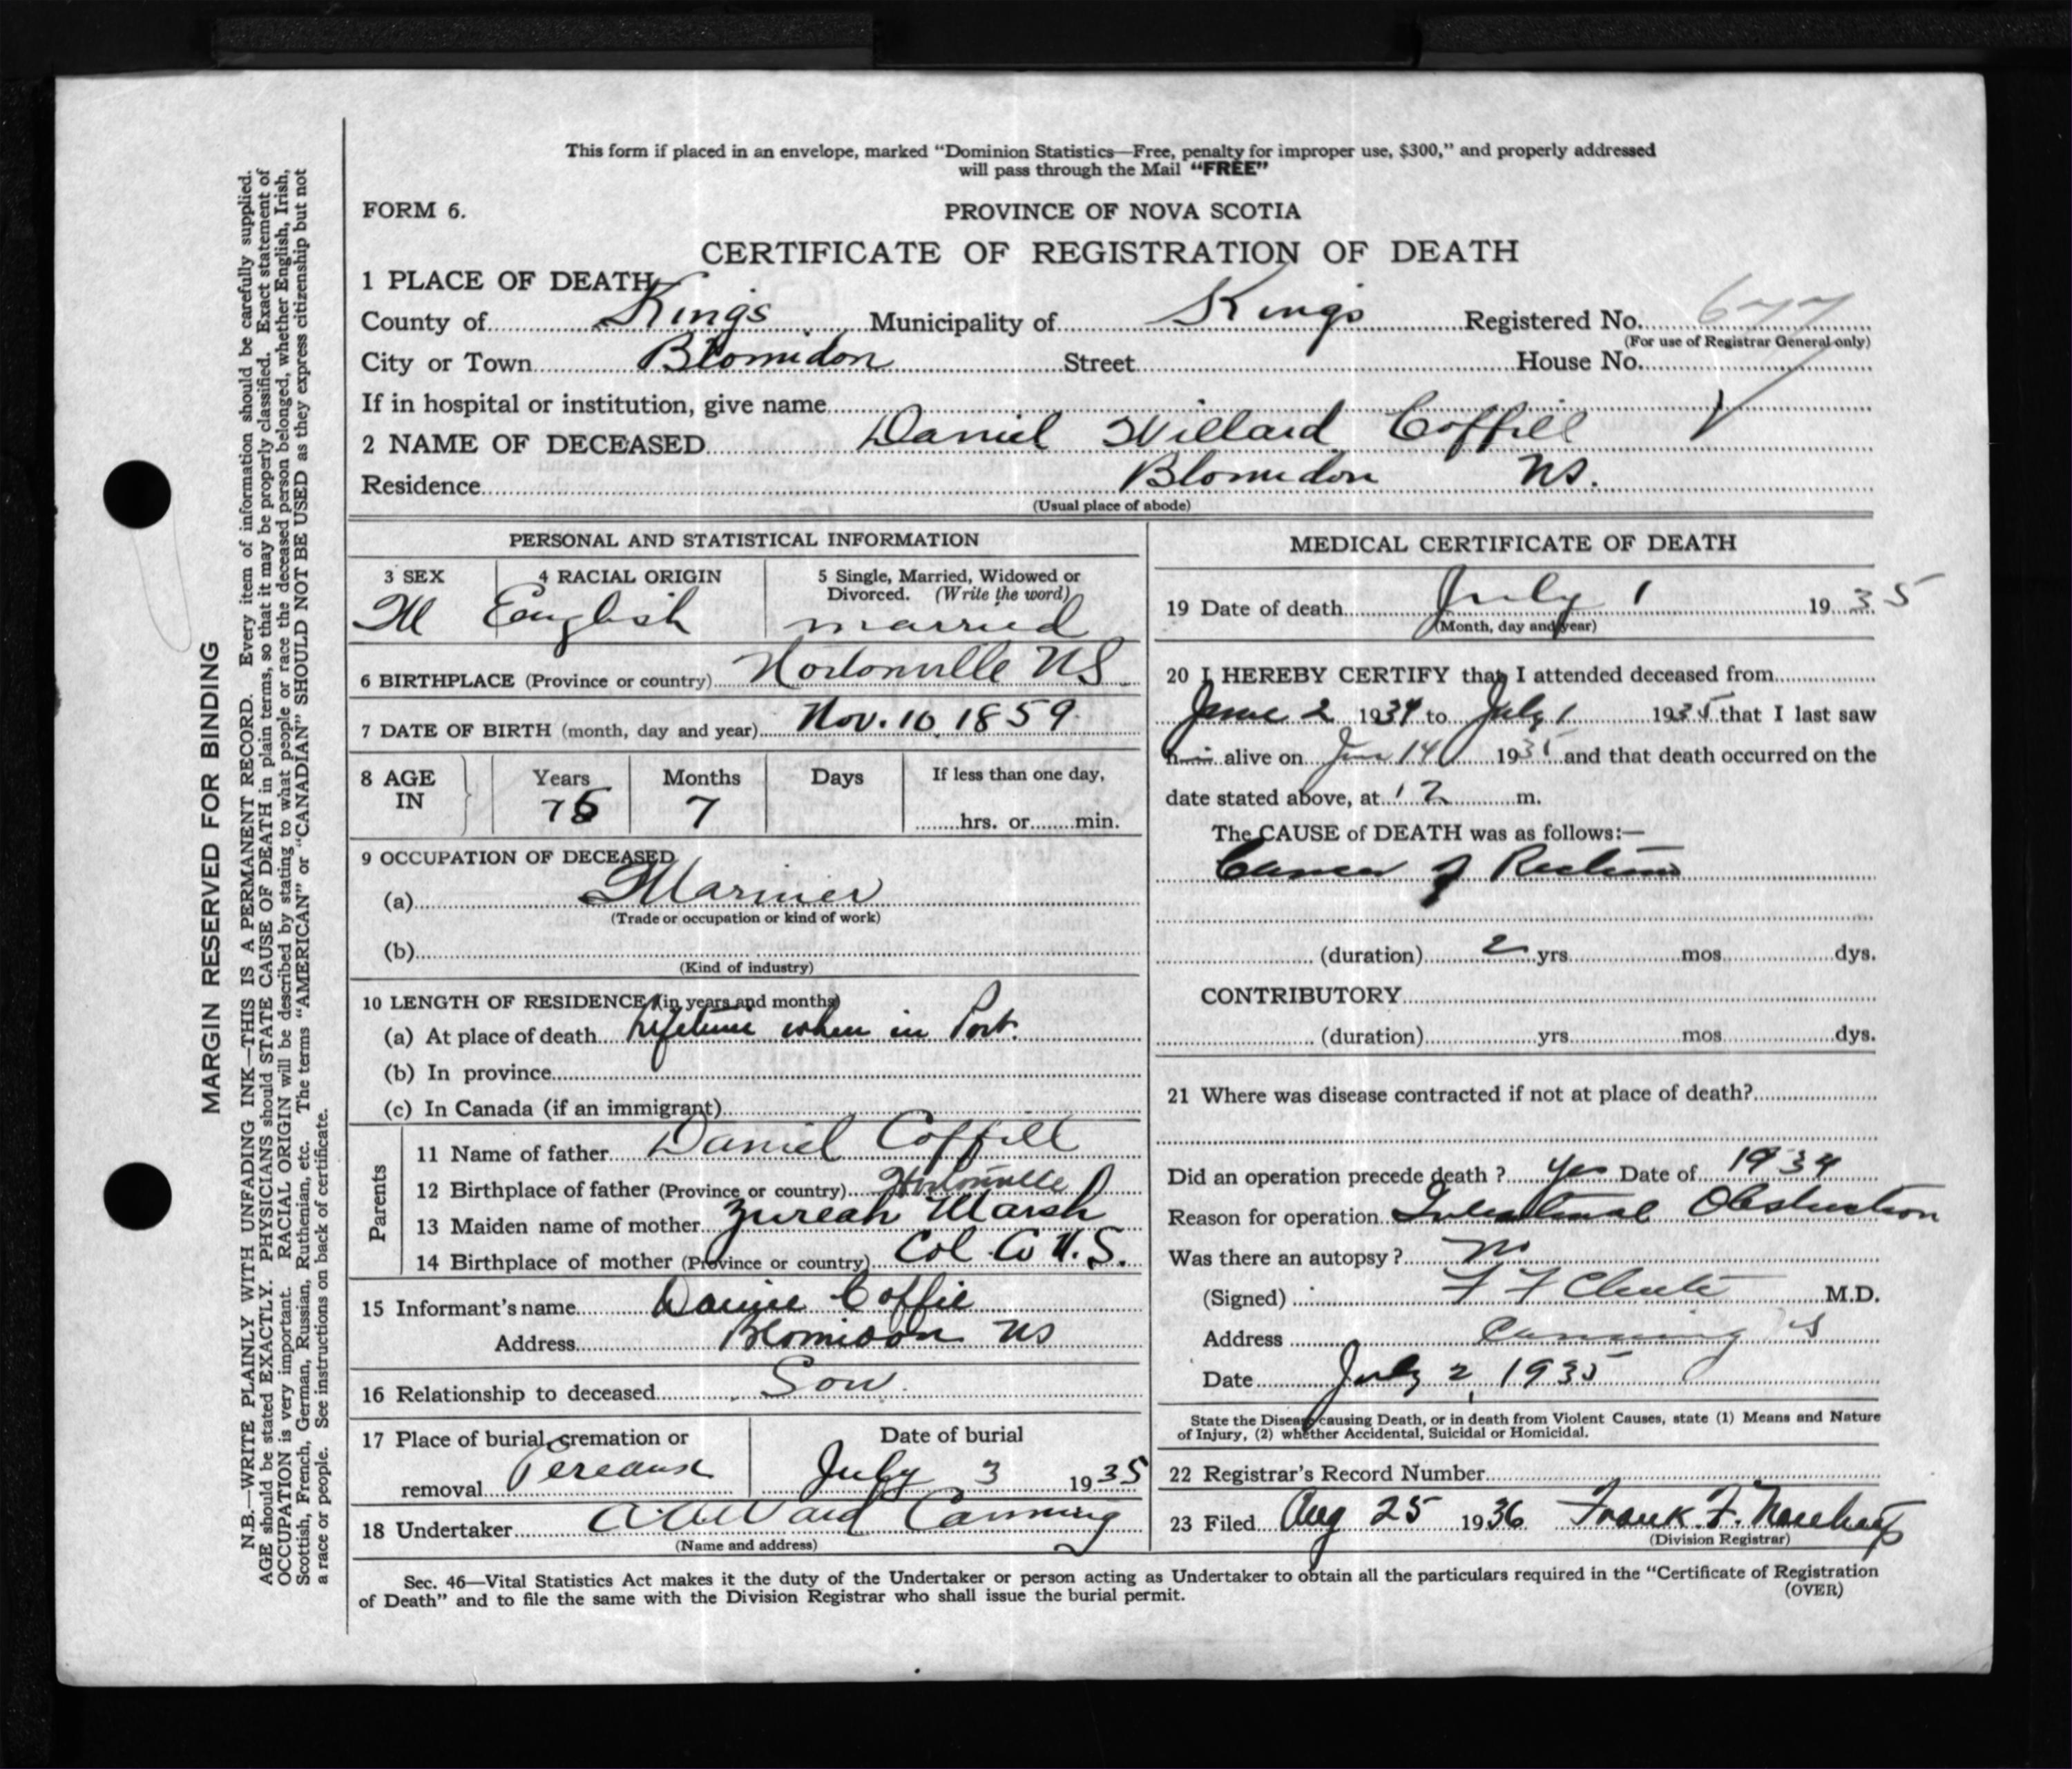 This form if placed in an envelope, marked "Dominion Statistics—Free, penalty for improper use, $300," and properly addressed
will pass through the Mail "FREE"
FORM 6.
PROVINCE OF NOVA SCOTIA
CERTIFICATE OF REGISTRATION OF DEATH
1 PLACE OF DEATH
County of Kings Municipality of Kings Registered No. 677
(For use of Registrar General only)
City or Town Blomidon Street House No.
If in hospital or institution, give name
2 NAME OF DECEASED Daniel Willard Coffill
Residence Blomidon NS.
(Usual place of abode)
PERSONAL AND STATISTICAL INFORMATION
3 SEX 4 RACIAL ORIGIN 5 Single, Married, Widowed or
Divorced. (Write the word)
M English married
6 BIRTHPLACE (Province or country) Hortonville NS
7 DATE OF BIRTH (month, day and year) Nov. 10, 1859
8 AGE IN Years Months Days If less than one day,
75 7 hrs. or min.
9 OCCUPATION OF DECEASED
(a) Mariner
(Trade or occupation or kind of work)
(b)
(Kind of industry)
10 LENGTH OF RESIDENCE (in years and months)
(a) At place of death lifetime when in Port.
(b) In province
(c) In Canada (if an immigrant)
Parents
11 Name of father Daniel Coffill
12 Birthplace of father (Province or country) Hortonville
13 Maiden name of mother Zureah Marsh
14 Birthplace of mother (Province or country) Col. Co N.S.
15 Informant's name Coffil
Address Blomidon NS
16 Relationship to deceased Son.
17 Place of burial, cremation or Date of burial
removal Pereaux July 3 1935
18 Undertaker Ward Canning
(Name and address)
MEDICAL CERTIFICATE OF DEATH
19 Date of death July 1 1935
(Month, day and year)
20 I HEREBY CERTIFY that I attended deceased from
June 2 1934 to July 1 1935 that I last saw
him alive on Jun 14 1935 and that death occurred on the
date stated above, at 12 m.
The CAUSE of DEATH was as follows:—
Cancer of Rectum
(duration) 2 yrs. mos. dys.
CONTRIBUTORY
(duration) yrs. mos. dys.
21 Where was disease contracted if not at place of death?
Did an operation precede death? yes Date of 1934
Reason for operation Intestinal Obstruction
Was there an autopsy? no
(Signed) F F Chute M.D.
Address Canning NS
Date July 2, 1935
State the Disease causing Death, or in death from Violent Causes, state (1) Means and Nature
of Injury, (2) whether Accidental, Suicidal or Homicidal.
22 Registrar's Record Number
23 Filed Aug 25 1936 Frank. F.
(Division Registrar)
Sec. 46—Vital Statistics Act makes it the duty of the Undertaker or person acting as Undertaker to obtain all the particulars required in the "Certificate of Registration
of Death" and to file the same with the Division Registrar who shall issue the burial permit. (OVER)
MARGIN RESERVED FOR BINDING
N.B.—WRITE PLAINLY WITH UNFADING INK—THIS IS A PERMANENT RECORD. Every item of information should be carefully supplied.
AGE should be stated EXACTLY. PHYSICIANS should STATE CAUSE OF DEATH in plain terms, so that it may be properly classified. Exact statement of
OCCUPATION is very important. RACIAL ORIGIN will be described by stating to what people or race the deceased person belonged, whether English, Irish,
Scottish, French, German, Russian, Ruthenian, etc. The terms "AMERICAN" or "CANADIAN" SHOULD NOT BE USED as they express citizenship but not
a race or people. See instructions on back of certificate.